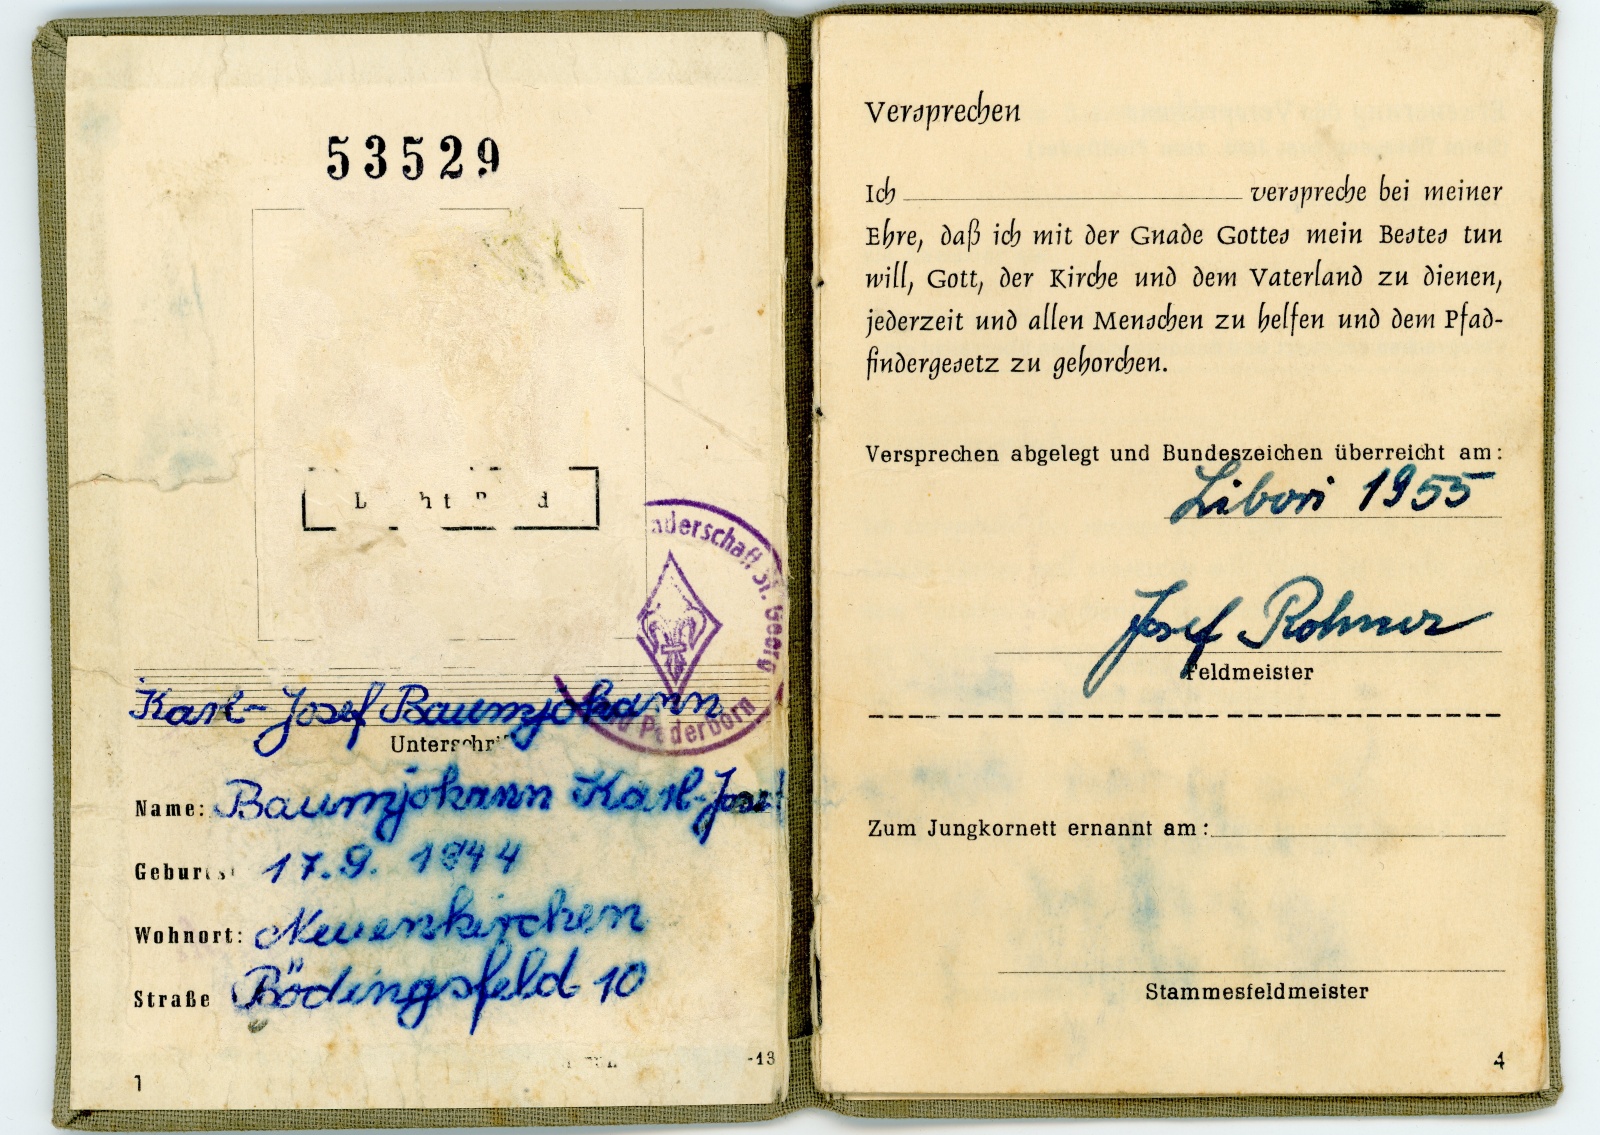 53529
nderschaft St. Georg
Paderborn
Karl-Josef Baumjohann
Name: Baumjohann Karl-Josef
17.9. 1944
Wohnort: Neuenkirchen
Straße Bödingsfeld 10
-13
1
Versprechen
Ich verspreche bei meiner
Ehre, daß ich mit der Gnade Gottes mein Bestes tun
will, Gott, der Kirche und dem Vaterland zu dienen,
jederzeit und allen Menschen zu helfen und dem Pfad-
findergesetz zu gehorchen.
Versprechen abgelegt und Bundeszeichen überreicht am:
Libori 1955
Josef Rohner
Feldmeister
Zum Jungkornett ernannt am:
Stammesfeldmeister
4